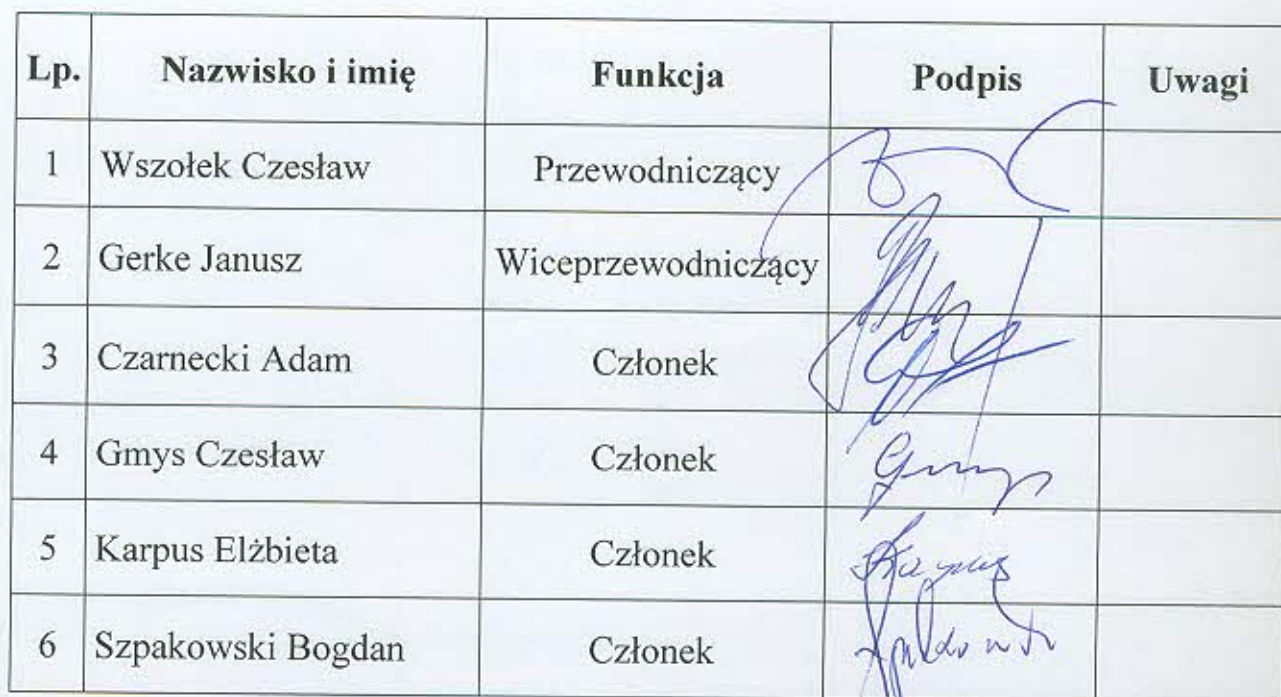 Lp. Nazwisko i imię Funkcja Podpis Uwagi
1 Wszołek Czesław Przewodniczący
2 Gerke Janusz Wiceprzewodniczący
3 Czarnecki Adam Członek
4 Gmys Czesław Członek Gmys
5 Karpus Elżbieta Członek Karpus
6 Szpakowski Bogdan Członek